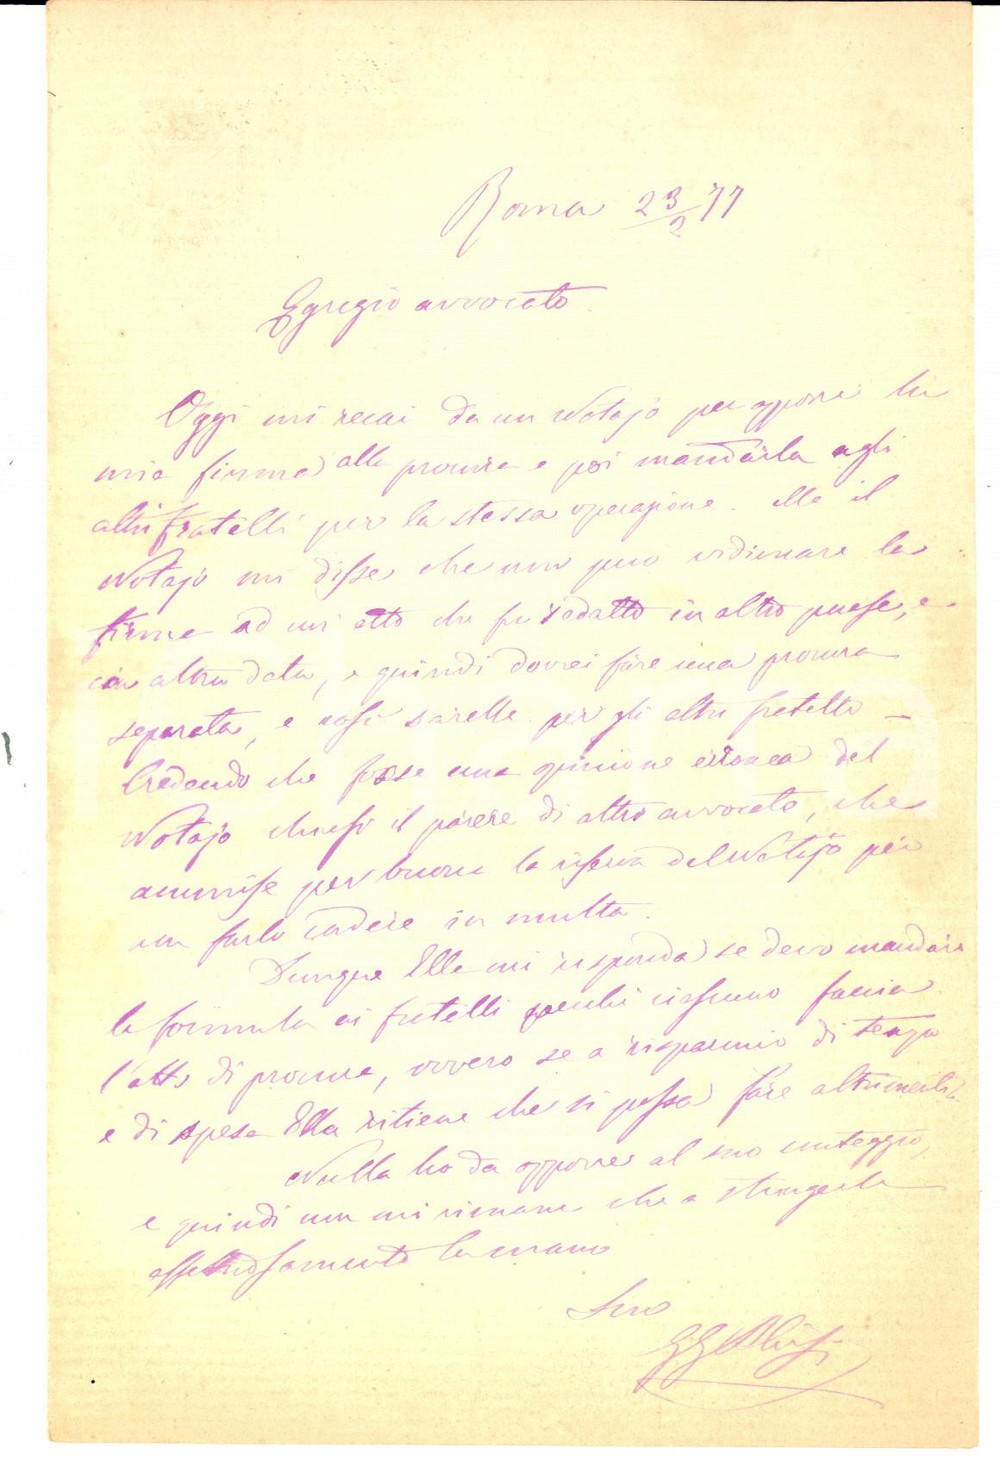 Roma 23/2 77
Egregio avvocato.
Oggi mi recai da un Notajo per apporre la
mia firma alla procura e poi mandarla agli
altri fratelli per la stessa operazione. Ma il
Notajo mi disse che non può vidimare la
firma ad un atto che fu redatto in altro paese, e
in altra data, e quindi dovrei fare una procura
separata, e così sarebbe per gli altri fratelli –
Credendo che fosse una opinione erronea del
Notajo chiesi il parere di altro avvocato, che
ammise per buona la riserva del Notajo per
non farlo cadere in multa.
Dunque Ella mi risponda se devo mandare
la formula ai fratelli perché ciascuno faccia
l'atto di procura, ovvero se a risparmio di tempo
e di spesa Ella ritiene che si possa fare altrimenti.
Nulla ho da opporre al suo conteggio,
e quindi non mi rimane che a stringerle
affettuosamente la mano
Suo